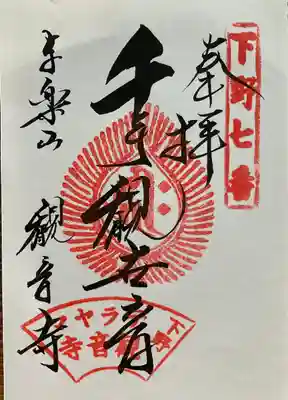 下野七番
奉拝
千手観世音
与楽山
観音寺
下野
テラヤマ
観音寺